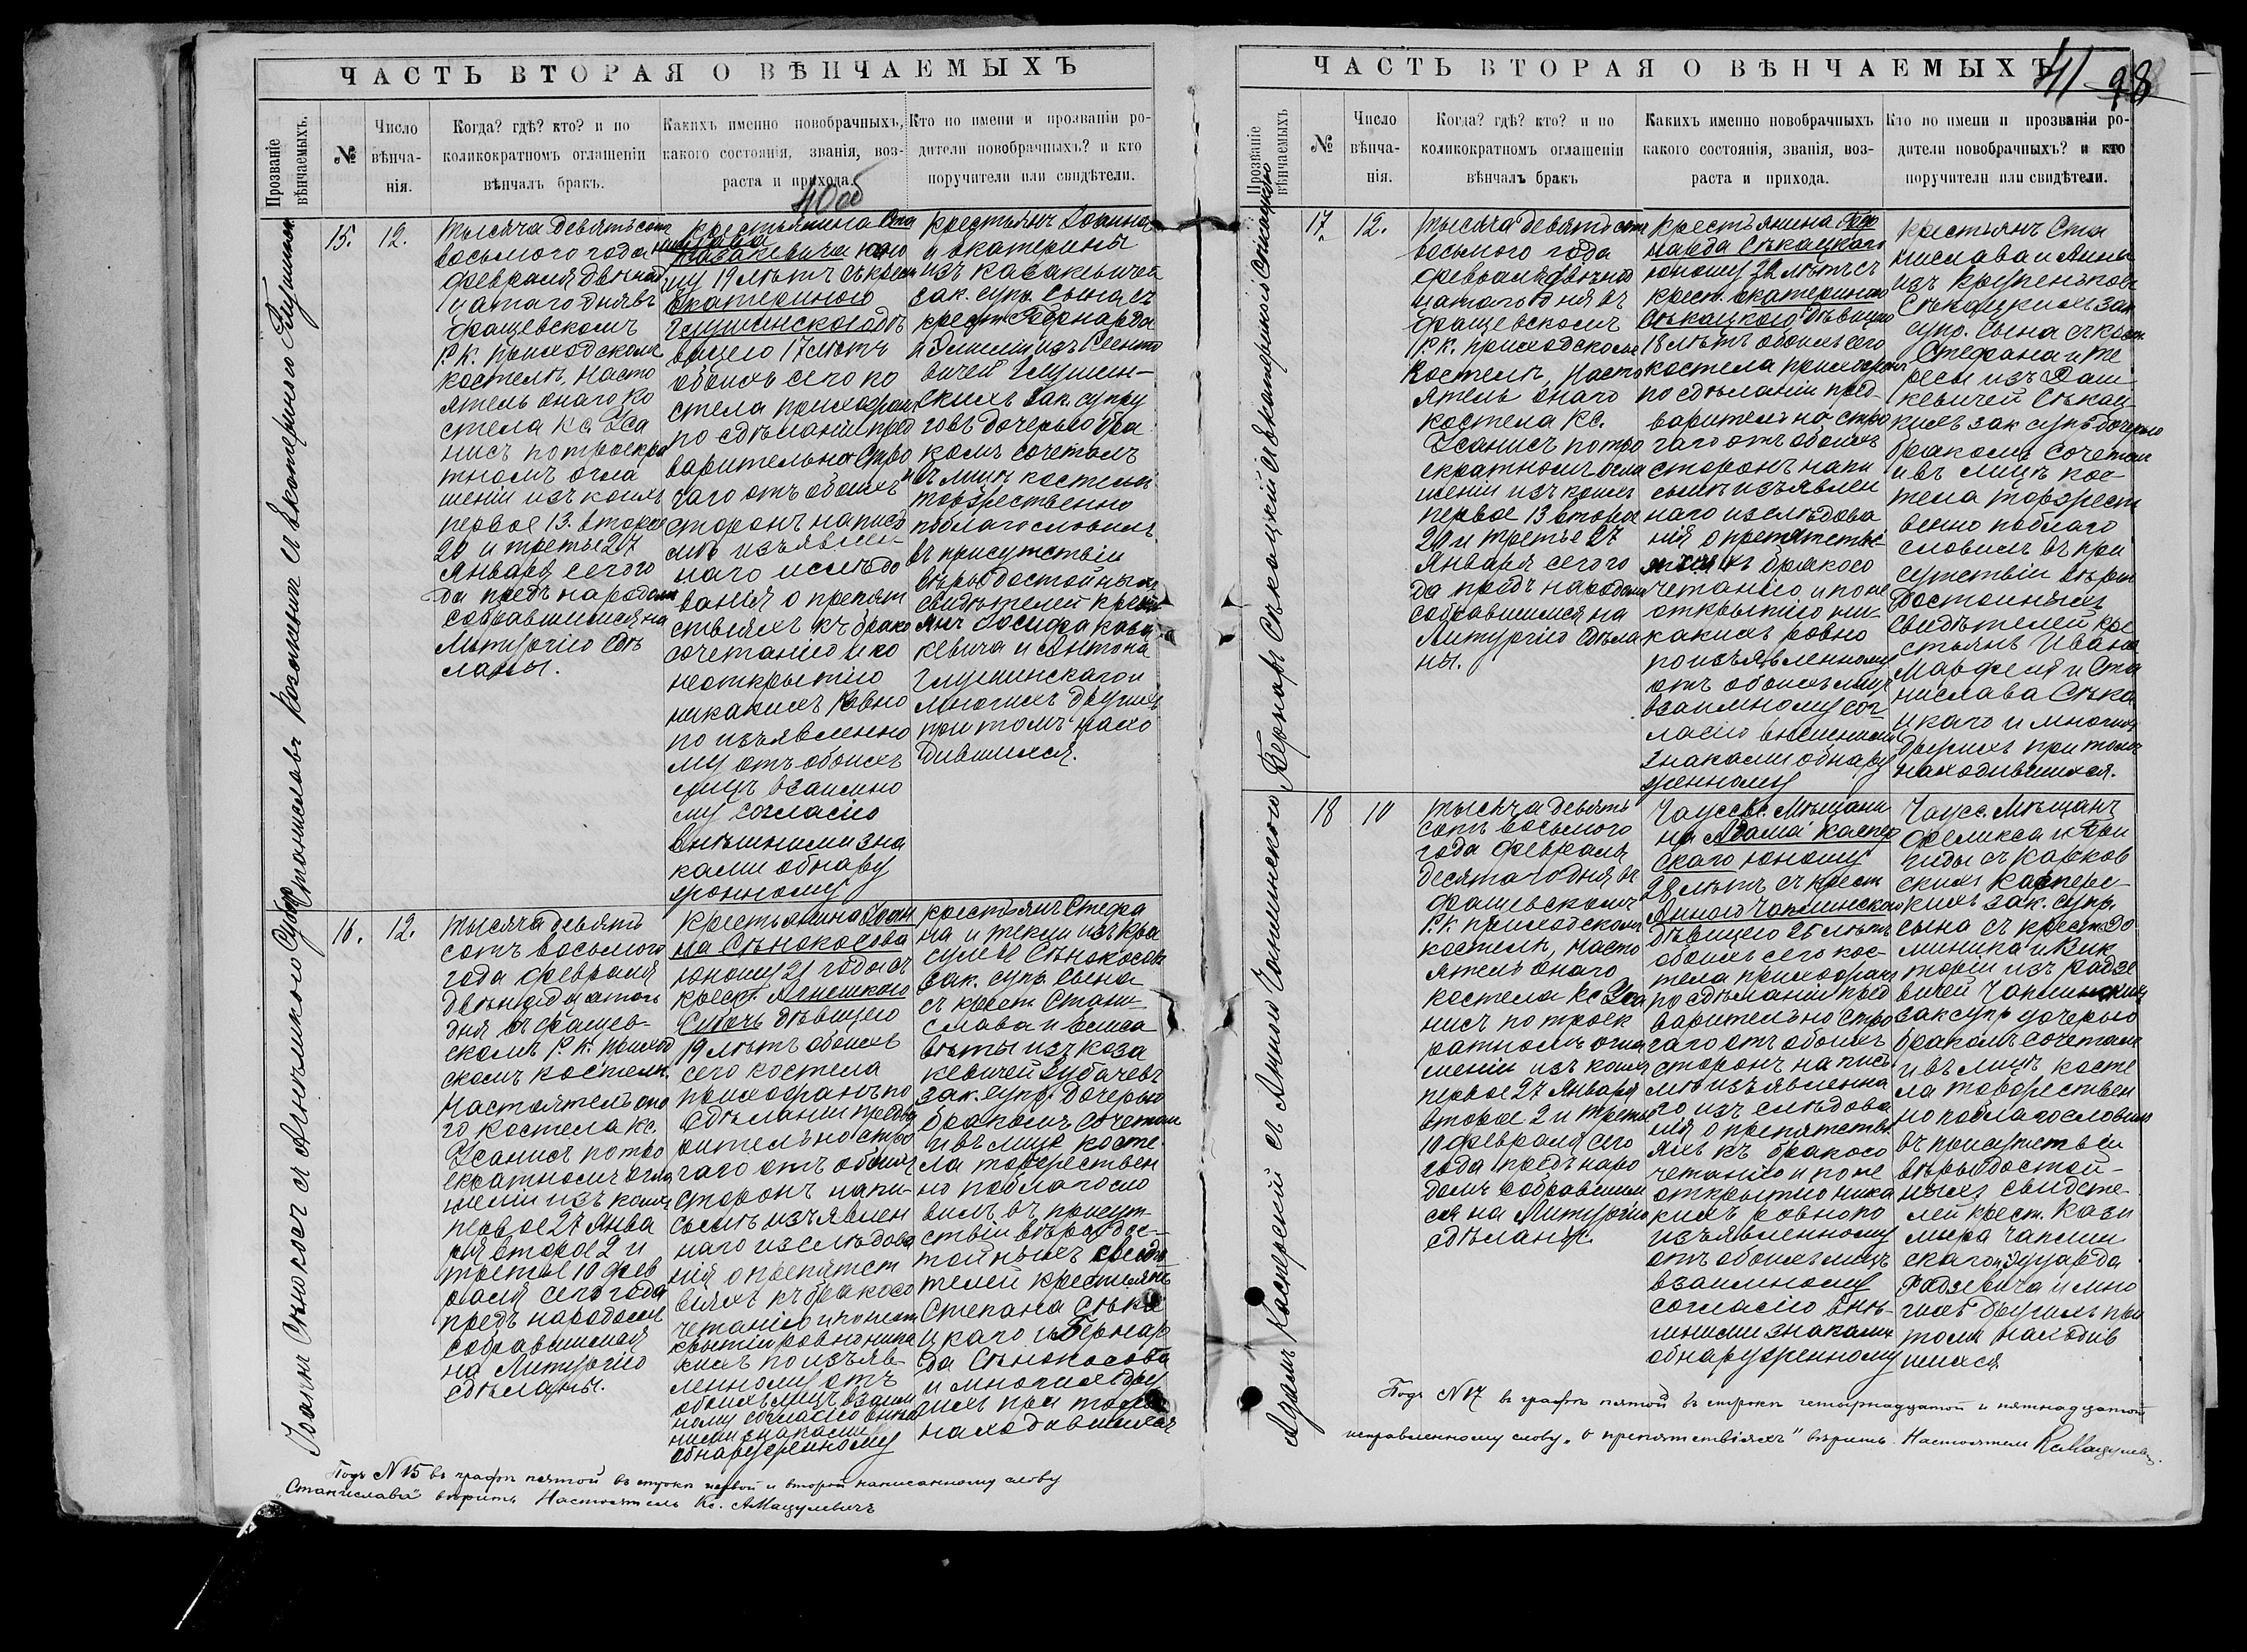 ЧАСТЬ ВТОРАЯ О ВѢНЧАЕМЫХЪ
Прозваніе вѣнчаемыхъ.
№
Число
вѣнча-
нія.
Когда? гдѣ? кто? и по
коликократномъ оглашеніи
вѣнчалъ бракъ.
Какихъ именно новобрачныхъ,
какого состоянія, званія, воз-
раста и прихода.
Кто по имени и прозваніи ро-
дители новобрачныхъ? и кто
поручители или свидѣтели.
Станиславъ Козакевичъ съ Екатериною
15.
12.
Тысяча девятьсотъ
восьмого года
февраля двѣнад
цатаго дня въ
Фащевскомъ
Р. К. приходскомъ
костелѣ, насто
ятель онаго ко
стела Кс.
по троекра
тномъ огла
шеніи изъ коихъ
первое 13. второе
20 и третье 27
января сего го
да предъ народомъ
собравшимся на
Литургію сдѣ
ланы.
крестьянина Ста
нислава
Казакевича юно
шу 19 лѣтъ съ крест
Екатериною
Глушинскою дѣ
вицею 17 лѣтъ
обоихъ сего ко
стела прихожан
по сдѣланіи пред
варительно стро
гаго отъ обоихъ
сторонъ напись
мѣ изъявлен-
наго изслѣдо
ванія о препят
ствіяхъ къ брако
сочетанію и по
неоткрытію
никакихъ равно
по изъявленно
му отъ обоихъ
лицъ взаимно
му согласію
внѣшними зна
ками обнару
женному
крестьянъ
и Екатерины
изъ Казакевичей
зак. супр. сына съ
крест. Бернарда
и Эмиліи изъ
вичей Глушин-
скихъ зак. супру
говъ дочерью бра
комъ сочеталъ
и въ лицѣ костела
торжественно
поблагословилъ
въ присутствіи
вѣры достойныхъ
свидѣтелей крест
янъ Іосифа Каза
кевича и Антона
Глушинскаго и
многихъ другихъ
при томъ нахо
дившихся.
Іоаннъ Сѣнокосъ съ Агнешкою
16.
12.
Тысяча девять
сотъ восьмого
года февраля
двѣнадцатаго
дня въ Фащев-
скомъ Р. К. приход
скомъ костелѣ.
Настоятель она
го костела Кс.
по тро
екратномъ огла
шеніи изъ коихъ
первое 27 янва
ря второе 2 и
третье 10 фев
раля сего года
предъ народомъ
собравшимся
на Литургію
сдѣланы.
крестьянина Іоан
на Сѣнокосова
юношу 21 года съ
крест. Агнешкою
дѣвицею
19 лѣтъ обоихъ
сего костела
прихожанъ по
сдѣланіи предва
рительно стро
гаго отъ обоихъ
сторонъ напи-
сьмѣ изъявлен
наго изслѣдова
нія о препятст
віяхъ къ бракосо
четанію и по неот
крытію равно ника
кихъ по изъяв-
ленному отъ
обоихъ лицъ взаим
ному согласію внѣш
ними знаками
обнаруженному
крестьянъ Стефа
на и Теклі изъ
Сѣнокосовъ
зак. супр. сына
съ крест. Стани-
слава и Елиза
веты изъ Коза
кевичей
зак. супр. дочерью
бракомъ сочеталъ
и въ лицѣ косте
ла торжествен
но поблагосло
вилъ въ присут-
ствіи вѣры дос-
тойныхъ свидѣ
телей крестьянъ
Степана Сѣка
цкаго и Бернар
да Сѣнокосова
и многихъ дру
гихъ при томъ
находившихся
Подъ N 15 въ графѣ пятой въ строкѣ первой и второй написанному слову
„Станислава" вѣрить Настоятель Кс. АМацулевичъ
ЧАСТЬ ВТОРАЯ О ВѢНЧАЕМЫХЪ
41 98
Прозваніе вѣнчаемыхъ
№
Число
вѣнча-
нія.
Когда? гдѣ? кто? и по
коликократномъ оглашеніи
вѣнчалъ бракъ
Какихъ именно новобрачныхъ
какого состоянія, званія, воз-
раста и прихода.
Кто по имени и прозваніи ро-
дители новобрачныхъ? и кто
поручители или свидѣтели.
Бернардъ Сѣкацкій съ Екатериною Сѣкацкою
17.
12.
Тысяча девятьсотъ
восьмого года
февраля двѣнад
цатаго дня въ
Фащевскомъ
Р. К. приходскомъ
костелѣ, насто
ятель онаго
костела Кс.
по тро
екратномъ огла
шеніи изъ коихъ
первое 13 второе
20 и третье 27
января сего го
да предъ народомъ
собравшимся на
Литургію сдѣла
ны.
крестьянина Бер
нарда Сѣкацкаго
юношу 22 лѣтъ съ
крест. Екатериною
Сѣкацкою дѣвицею
18 лѣтъ обоихъ сего
костела прихожанъ
по сдѣланіи пред-
варительно стро
гаго отъ обоихъ
сторонъ напи
сьмѣ изъявлен
наго изслѣдова
нія о препятств
іяхъ къ бракосо
четанію и по не
открытію ни-
какихъ равно
по изъявленному
отъ обоихъ лицъ
взаимному сог
ласію внѣшними
знаками обнару
женному
крестьянъ Ста
нислава и Анны
изъ
Сѣкацкихъ зак
супр. сына съ крест.
Стефана и Те
ресы изъ Даш
кевичей Сѣкац
кихъ зак супр дочерью
бракомъ сочеталъ
и въ лицѣ кос-
тела торжест
венно поблаго
словилъ въ при
сутствіи вѣры
достойныхъ
свидѣтелей кре
стьянъ Ивана
и Ста
нислава Сѣка
цкаго и многихъ
другихъ при томъ
находившихся.
Адамъ Касперскій съ Анною Чаплинскою
18
10
Тысяча девять
сотъ восьмого
года февраля
десятаго дня въ
Фащевскомъ
Р. К. приходскомъ
костелѣ, насто
ятель онаго
костела Кс
по троек
ратномъ огла
шеніи изъ коихъ
первое 27 января
второе 2 и третье
10 февраля сего
года предъ наро
домъ собравшим
ся на Литургію
сдѣланы.
Чаусск. мѣщани
на Адама Каспер
скаго юношу
28 лѣтъ съ крест
Анною Чаплинскою
дѣвицею 25 лѣтъ
обоихъ сего кос-
тела прихожанъ
по сдѣланіи пред
варительно стро
гаго отъ обоихъ
сторонъ напись
мѣ изъявленна
го изслѣдова
нія о препятстві
яхъ къ бракосо
четанію и по не
открытію ника
кихъ равно по
изъявленному
отъ обоихъ лицъ
взаимному
согласію внѣ-
шними знаками
обнаруженному
Чаусс. мѣщанъ
Феликса и Бри
гиды
Касперс-
кихъ зак. супр.
сына съ крест. До
миника и Вик
торіи изъ Радзе
вичей Чаплинскихъ
зак супр дочерью
бракомъ сочеталъ
и въ лицѣ косте
ла торжествен
но поблагословилъ
въ присутствіи
вѣры достой-
ныхъ свидѣте-
лей крест. Кази
мира Чаплин
скаго и Эдуарда
Радзевича и мно
гихъ другихъ при
томъ находив
шихся
Подъ N 17 въ графѣ пятой въ строкѣ четырнадцатой и пятнадцатой
исправленному слову „о препятствіяхъ" вѣрить. Настоятель Кс. АМацулевичъ.